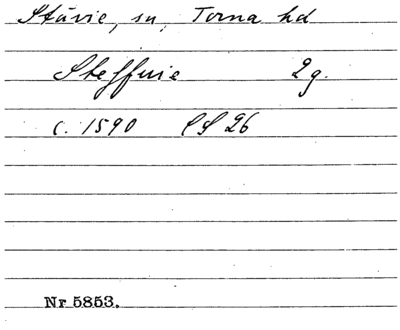 Stävie, sn, Torna hd
Steffuie 2g.
c. 1590 LS 26
Nr 5853.